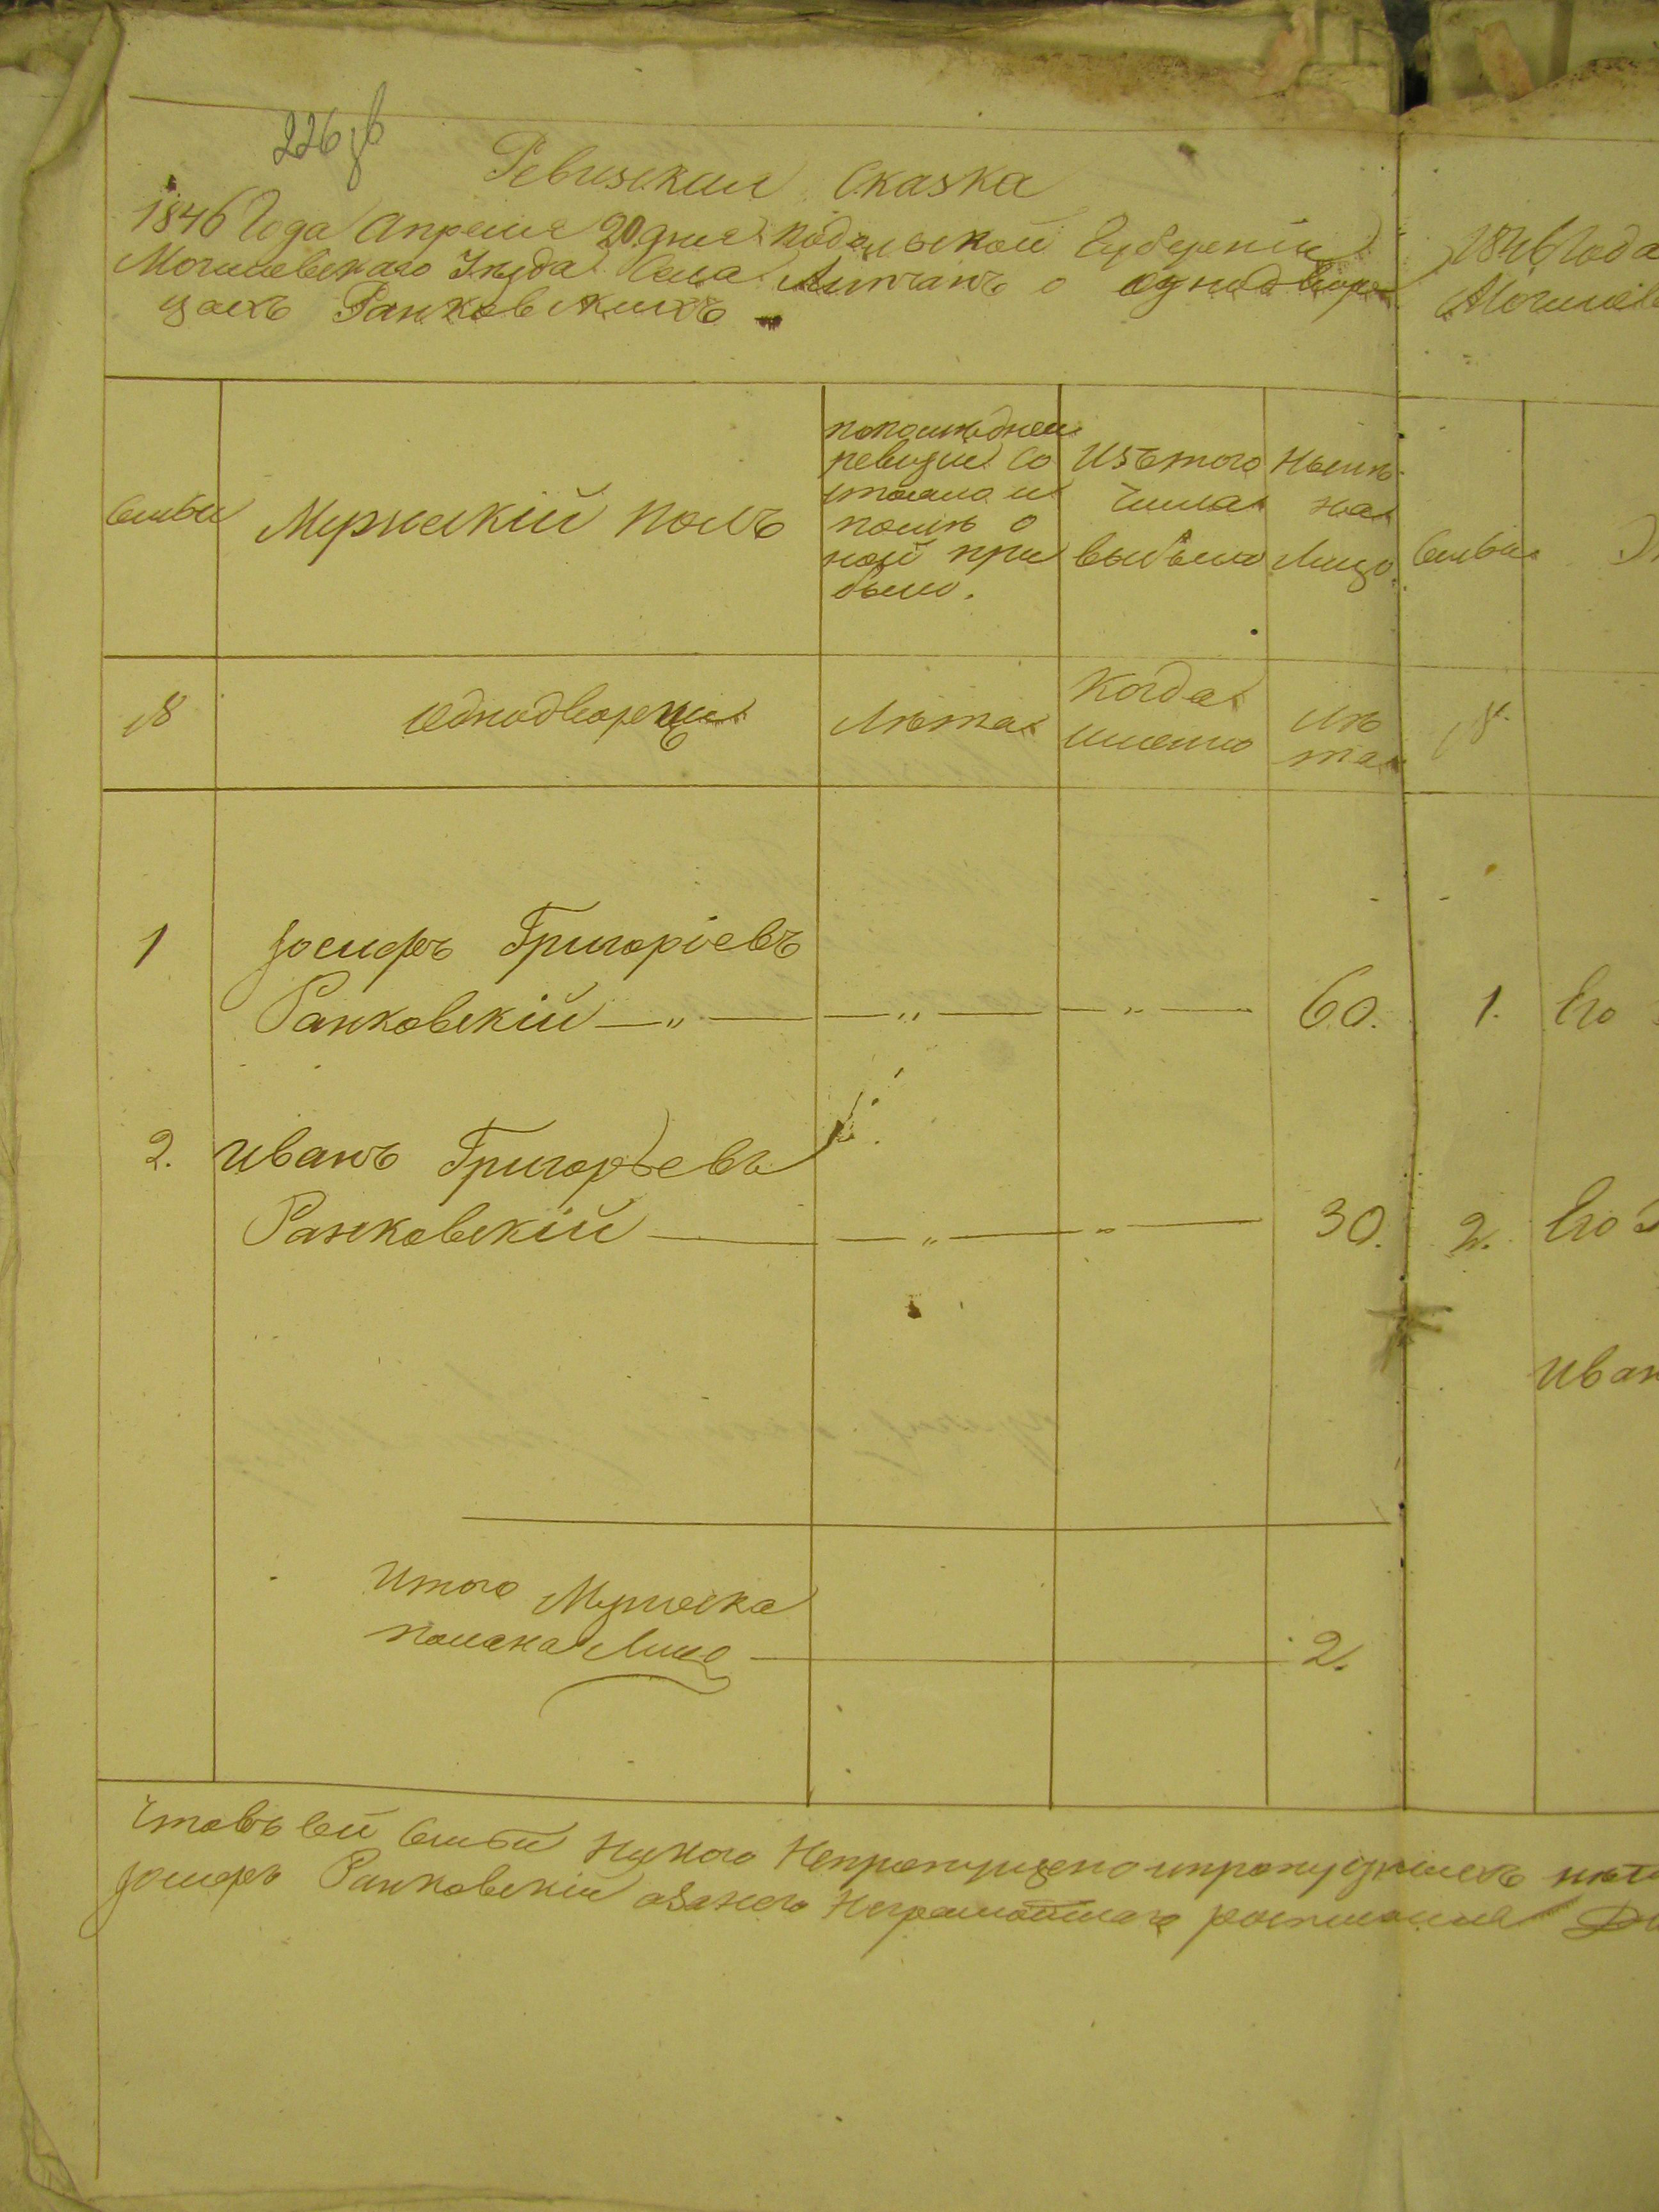 226 об
Ревизская Сказка
1846 Года Апреля 20 дня Подольской Губерніи
Могилевскаго Уезда Села Липчанъ о однодвор
цахъ Ранковскихъ
1846 Года
Могилев
Семьи
Мужескій полъ
попоследней
ревизіи Со
стояло и
после о
ной при
было.
Изътого
Числа
выбыло
Ныне
на
Лицо.
Семьи
№
Однодворцы
Лѣта
Когда
именно
Лѣ
та
№
1 Іосифъ Григоріевъ
Ранковскій — „ — — „ — — „ — 60. 1. Его
2. Иванъ Григорьевъ
Ранковскій — — „ — „ — 30. 2. Его
Иван
Итого Мужеска
пола на Лицо — 2.
Чтовъ сей Семьи Никого Непропущено ипропускныхъ нет
Іосифъ Ранковскій Неграмотнаго